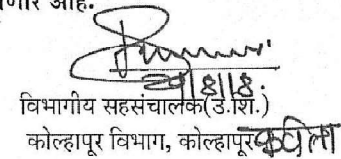 णार आहे.
विभागीय सहसंचालक(उ.शि.)
कोल्हापूर विभाग, कोल्हापूर